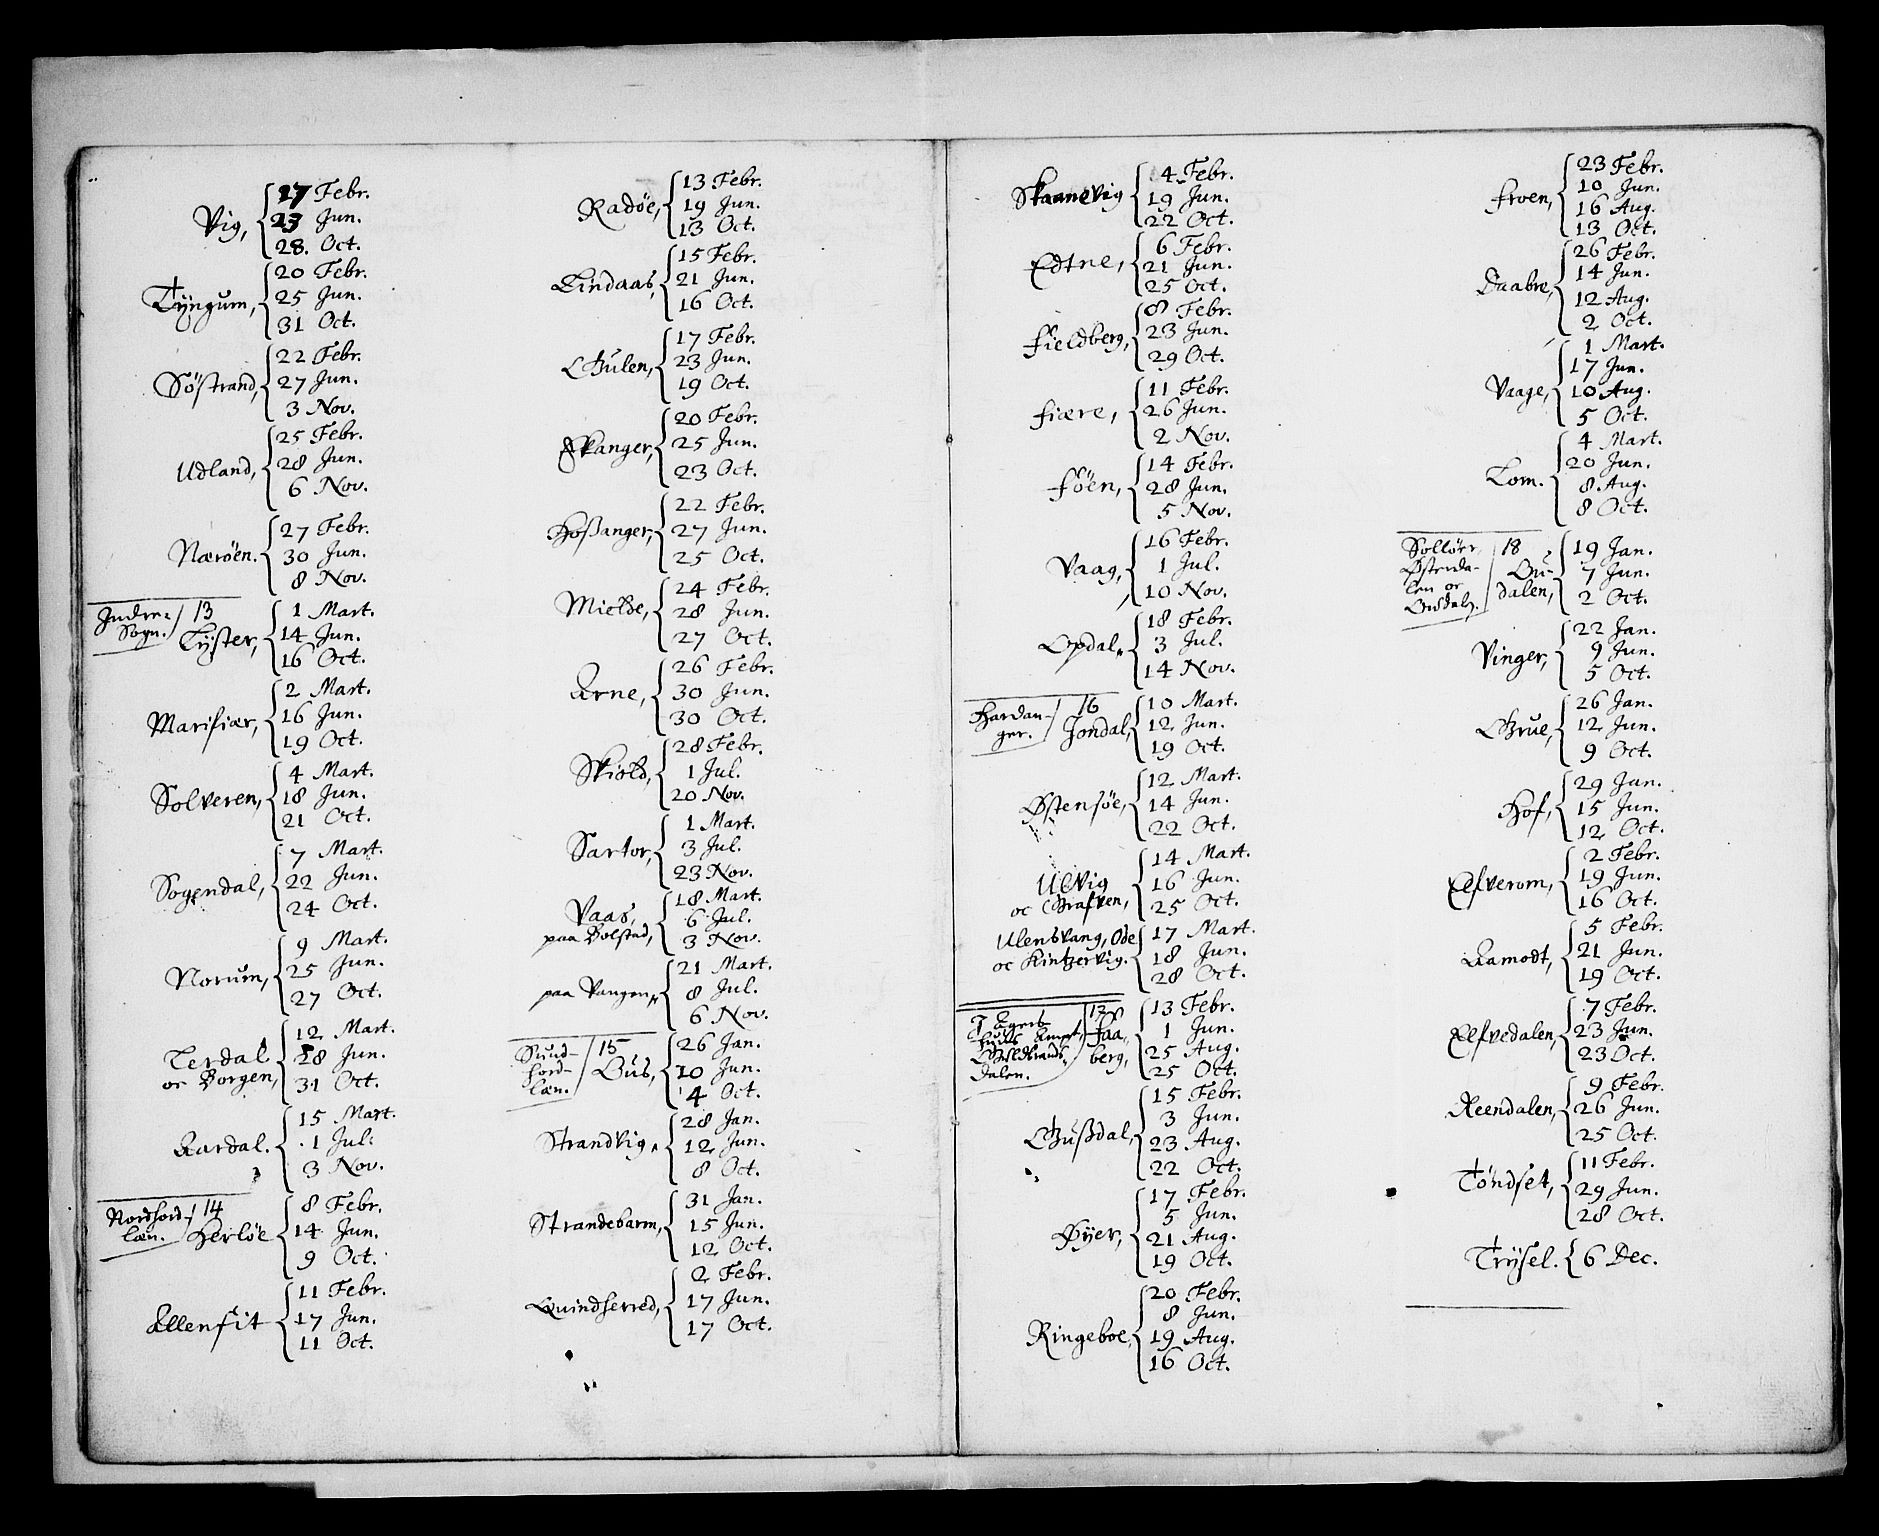 Vig,
17 Febr.
23 Jun.
28. Oct.
Tÿngum,
20 Febr.
25 Jun.
31 Oct.
Söstrand,
22 Febr.
27 Jun.
3 Nov.
Udland,
25 Febr.
28 Jun.
6 Nov.
Nærøen.
27 Febr.
30 Jun.
8 Nov.
Indre-
Sogn.
13
Lÿster,
1 Mart.
14 Jun.
16 Oct.
Marifiær,
2 Mart.
16 Jun.
19 Oct.
Solveren,
4 Mart.
18 Jun.
21 Oct.
Sogendal,
7 Mart.
22 Jun.
24 Oct.
Norum,
9 Mart.
25 Jun.
27 Oct.
Lerdal
oc Borgen,
12 Mart.
28 Jun.
31 Oct.
Aardal.
15 Mart.
1 Jul.
3 Nov.
Nordhord-
læn.
14
Herlöe
8 Febr.
14 Jun.
9 Oct.
Allenfit
11 Febr.
17 Jun.
11 Oct.
Radöe,
13 Febr.
19 Jun.
13 Oct.
Lindaas,
15 Febr.
21 Jun.
16 Oct.
Gulen,
17 Febr.
23 Jun.
19 Oct.
Skanger,
20 Febr.
25 Jun.
23 Oct.
Hoßanger,
22 Febr.
27 Jun.
25 Oct.
Mielde,
24 Febr.
28 Jun.
27 Oct.
Arne,
26 Febr.
30 Jun.
30 Oct.
Skiold,
28 Febr.
1 Jul.
20 Nov.
Sartor,
1 Mart.
3 Jul.
23 Nov.
Vaas,
paa Bolstad,
18 Mart.
6 Jul.
3 Nov.
paa Vangen,
21 Mart.
8 Jul.
6 Nov.
Sund-
hord-
læn.
15
Øus,
26 Jan.
10 Jun.
4 Oct.
Strandvig,
28 Jan.
12 Jun.
8 Oct.
Strandebarm,
31 Jan.
15 Jun.
12 Oct.
Quindherred,
2 Febr.
17 Jun.
17 Oct.
Skaanevig
4 Febr.
19 Jun.
22 Oct.
Edtne,
6 Febr.
21 Jun.
25 Oct.
Fieldberg,
8 Febr.
23 Jun.
29 Oct.
Fiære,
11 Febr.
26 Jun.
2 Nov.
Föen,
14 Febr.
28 Jun.
5 Nov.
Vaag,
16 Febr.
1 Jul.
10 Nov.
Opdal,
18 Febr.
3 Jul.
14 Nov.
Hardan-
ger.
16
Jondal,
10 Mart.
12 Jun.
19 Oct.
Østensöe,
12 Mart.
14 Jun.
22 Oct.
Ulvig
oc Grafven,
14 Mart.
16 Jun.
25 Oct.
Ulensvang, Ode
oc Kintzervig.
17 Mart.
18 Jun.
28 Oct.
J Agers
huus Ampt,
Guldbrands-
dalen.
17
Faa-
berg,
13 Febr.
1 Jun.
25 Aug.
25 Oct.
Gußdal,
15 Febr.
3 Jun.
23 Aug.
22 Oct.
Øyer,
17 Febr.
5 Jun.
21 Aug.
19 Oct.
Ringeboe,
20 Febr.
8 Jun.
19 Aug.
16 Oct.
Froen,
23 Febr.
10 Jun.
16 Aug.
13 Oct.
Daabre,
26 Febr.
14 Jun.
12 Aug.
2 Oct.
Vaage,
1 Mart.
17 Jun.
10 Aug.
5 Oct.
Lom.
4 Mart.
20 Jun.
8 Aug.
8 Oct.
Sollöer,
Østerda-
len oc
Ousdalen.
18
Ou-
dalen,
19 Jan.
7 Jun.
2 Oct.
Vinger,
22 Jan.
9 Jun.
5 Oct.
Grue,
26 Jan.
12 Jun.
9 Oct.
Hof,
29 Jan.
15 Jun.
12 Oct.
Elfverom,
2 Febr.
19 Jun.
16 Oct.
Aamodt,
5 Febr.
21 Jun.
19 Oct.
Elfvedalen,
7 Febr.
23 Jun.
23 Oct.
Reendalen,
9 Febr.
26 Jun.
25 Oct.
Töndset,
11 Febr.
29 Jun.
28 Oct.
Trÿsel.
6 Dec.